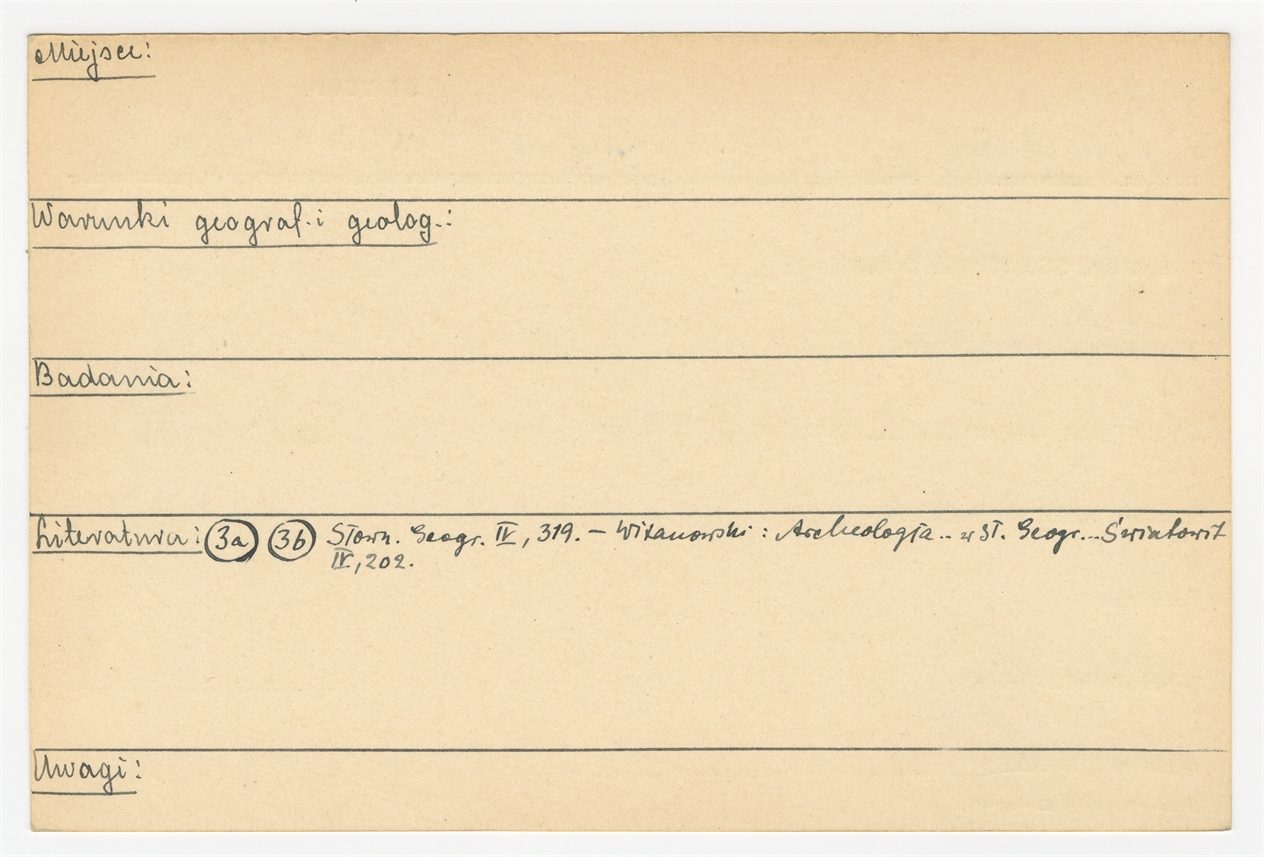 Miejsce:
Warunki geograf. i geolog.:
Badania:
Literatura: 3a 3b Słown. Geogr. IV, 319. – Witanowski: Archeologia.. w Sł. Geogr... Światowit
IV, 202.
Uwagi: